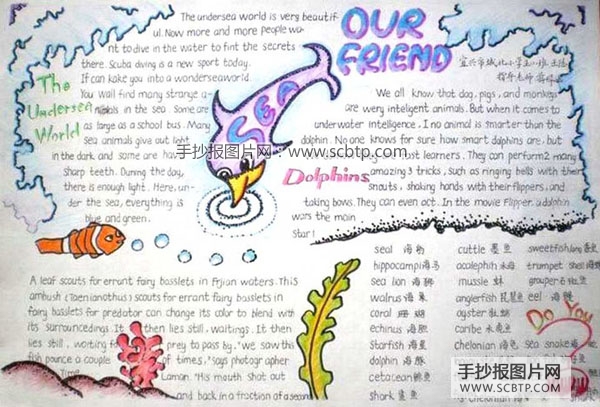 OUR
FRIEND
The undersea world is very beautif
ul. Now more and more people wa
nt to dive in the water to fint the secrets
there. Scuba diving is a new sport today.
If can kake you into a wonderseaworld.
You Wall find many strange a
nimals in the sea Some are
as large as a school bus. Many
sea animals give out light
in the dark and some are ha
Sharp teeth. During the day,
there is enough light. Here, un-
der the sea, everything is
blue and green.
The
Undersea
World
SEA
手抄报图片网：www.scbtp.com
We all know that dog, pigs, and monkeys
are very inteligent animals. But when it comes to
underwater intelligence, I no animal is smarter than the
dolphin. No one knows for sure how smart dolphins are, but
most learners. They can perform2 many
amazing 3 tricks, such as ringing bells with their
snouts, shaking honds with their flippers, and
taking bows. They can even act. In the movie Flipper, a dolphin
was the main
Star!
Dolphins
A leaf scouts for errant fairy basslets in Frjian waters. This
ambush (Taenianothus) scouts for errant fairy basslets in
fairy basslets for predator can change its color to blend with
its surroundingz. It then lies still, waitings. It then
lies still, waiting for prey to pass by. "we saw this
fish pounce a couple of times," says photographer
Time
Laman. "His mouth shot out
and back in a fraction of a second
seal 海豹
hippocampi 海马
sea lion 海狮
walrus 海象
coral 珊瑚
echinus 海胆
Starfish 海星
dolphin 海豚
cetacean 鲸鱼
shark 鲨鱼
cuttle 墨鱼
acalephih 水海
mussle 蚌
anglerfish 琵琶鱼
oyster 牡蛎
caribe 水虎鱼
chelonian 海龟
sweetfish
trumpet shell 海螺
grouper
eel 海鳗
Sea snake
Do You
手抄报图片网
WWW.SCBTP.COM